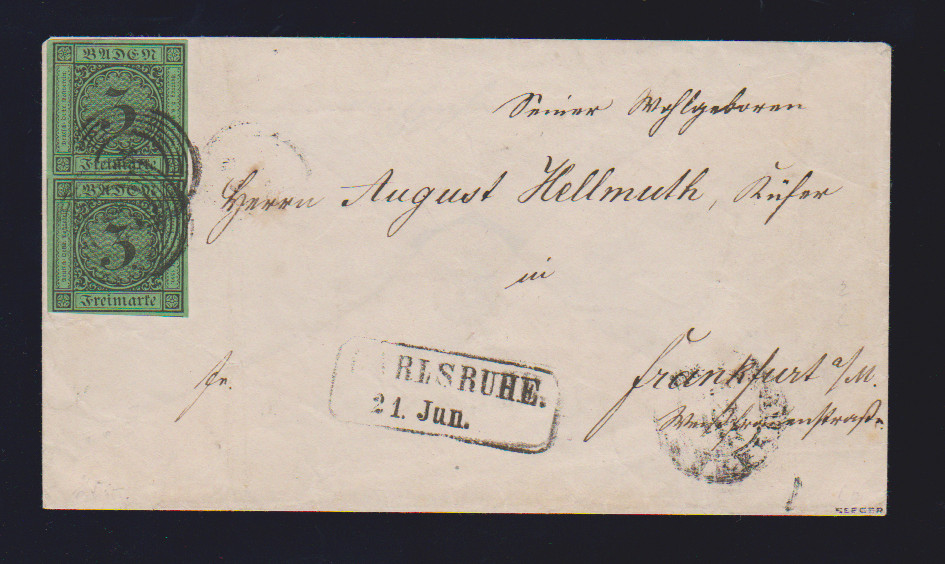 BADEN
3
Freimarke
BADEN
3
Freimarke
Seiner Wohlgeboren
Herrn August Hellmuth, Küfer
in
fr.
Frankfurt a/M.
CARLSRUHE.
21. Jun.
SEEGER